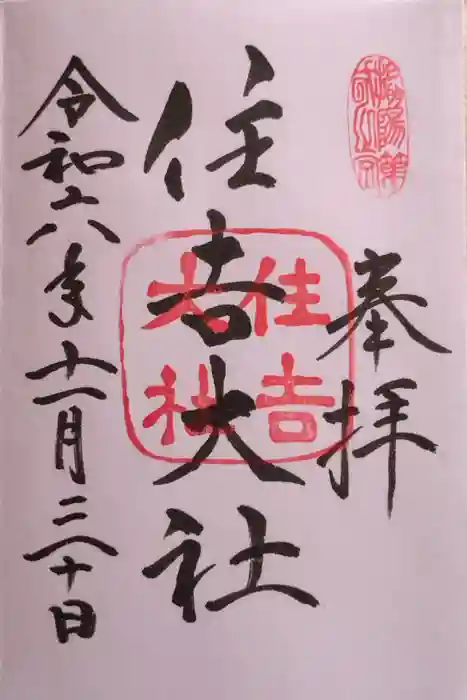 奉拝
住吉大社
住吉
大社
令和六年十一月三十日